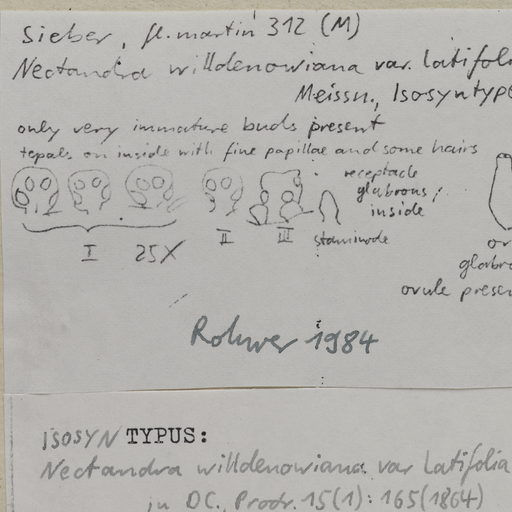 Sieber, fl. martin 312 (M)
Nectandra willdenowiana var. latifoli
Meissn., Isosyntype
only very immature buds present
tepals on inside with fine papillae and some hairs
receptacle
glabrous
inside
I 25X II III staminode
glabro
ovule presen
Rohwer 1984
ISOSYNTYPUS:
Nectandra willdenowiana var latifolia
in DC., Prodr. 15(1): 165 (1864)